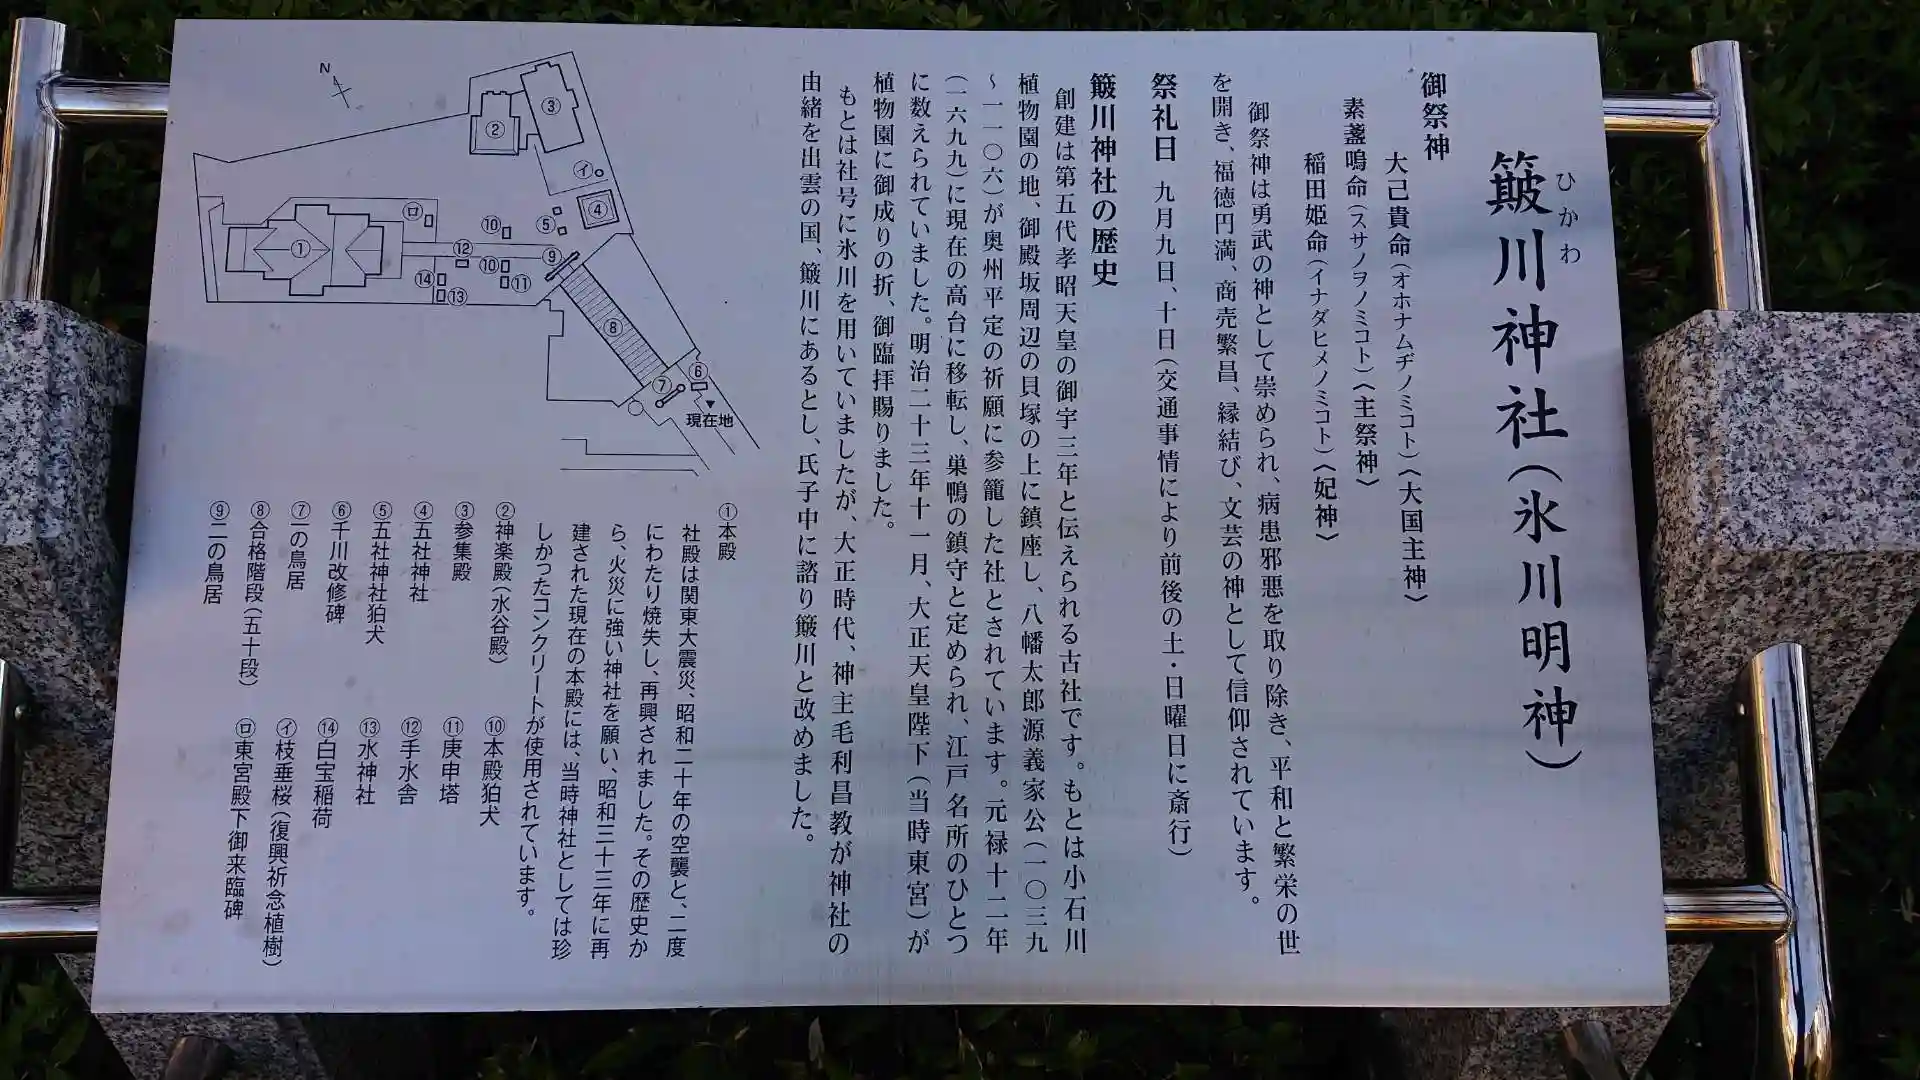 簸川神社(氷川明神)
ひかわ
御祭神
大己貴命(オホナムヂノミコト)〈大国主神〉
素盞嗚命(スサノヲノミコト)〈主祭神〉
稲田姫命(イナダヒメノミコト)〈妃神〉
御祭神は勇武の神として崇められ、病患邪悪を取り除き、平和と繁栄の世
を開き、福徳円満、商売繁昌、縁結び、文芸の神として信仰されています。
祭礼日 九月九日、十日(交通事情により前後の土・日曜日に斎行)
簸川神社の歴史
創建は第五代孝昭天皇の御宇三年と伝えられる古社です。もとは小石川
植物園の地、御殿坂周辺の貝塚の上に鎮座し、八幡太郎源義家公(一〇三九
～一一〇六)が奥州平定の祈願に参籠した社とされています。元禄十二年
(一六九九)に現在の高台に移転し、巣鴨の鎮守と定められ、江戸名所のひとつ
に数えられていました。明治二十三年十一月、大正天皇陛下(当時東宮)が
植物園に御成りの折、御臨拝賜りました。
もとは社号に氷川を用いていましたが、大正時代、神主毛利昌教が神社の
由緒を出雲の国、簸川にあるとし、氏子中に諮り簸川と改めました。
N
①
②
③
④
⑤
⑥
⑦
⑧
⑨
⑩
⑩
⑪
⑫
⑬
⑭
㋑
㋺
現在地
①本殿
社殿は関東大震災、昭和二十年の空襲と、二度
にわたり焼失し、再興されました。その歴史か
ら、火災に強い神社を願い、昭和三十三年に再
建された現在の本殿には、当時神社としては珍
しかったコンクリートが使用されています。
②神楽殿(水谷殿)
③参集殿
④五社神社
⑤五社神社狛犬
⑥千川改修碑
⑦一の鳥居
⑧合格階段(五十段)
⑨二の鳥居
⑩本殿狛犬
⑪庚申塔
⑫手水舎
⑬水神社
⑭白宝稲荷
㋑枝垂桜(復興祈念植樹)
㋺東宮殿下御来臨碑